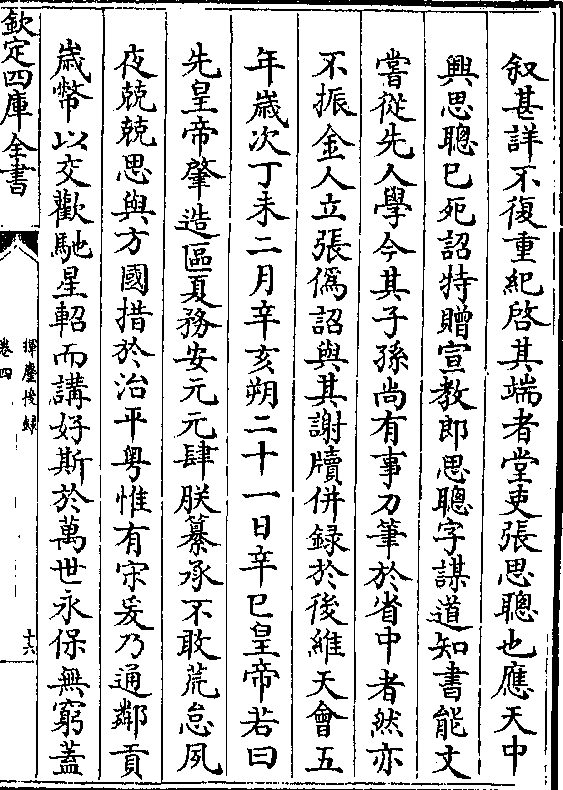 叙甚詳不復重紀啓其端者堂吏張思聰也應天中
興思聰已死詔特贈宣教郎思聰字謀道知書能文
嘗從先人學今其子孫尚有事刀筆於省中者然亦
不振金人立張僞詔與其謝牘併録於後維天會五
年歳次丁未二月辛亥朔二十一日辛巳皇帝若曰
先皇帝肇造區夏務安元元肆朕纂承不敢荒怠夙
夜兢兢思與方國措於治平粤惟有宋爰乃通鄰貢
歳幣以交歡馳星軺而講好斯於萬世永保無窮蓋
欽定四庫全書
揮麈後録
卷四
十六